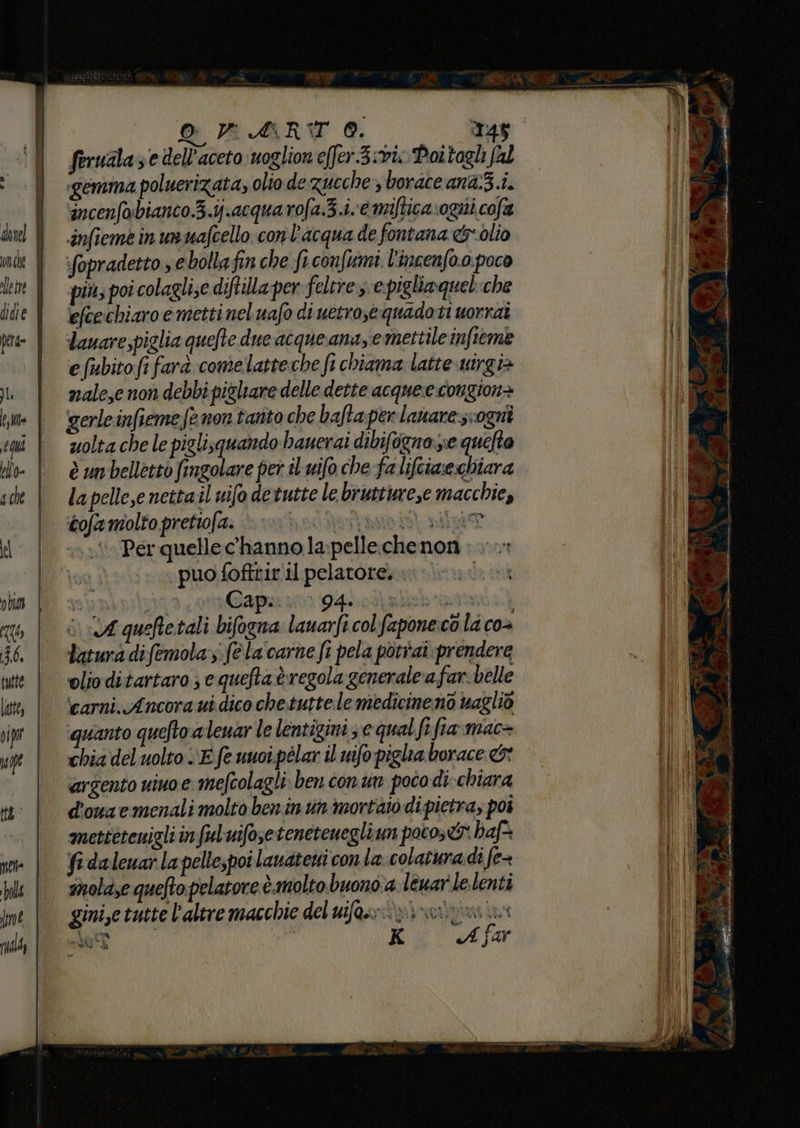 Q V A R T O. 145
ſeruala, e dell'aceto uoglion eſſer.ʒ.vi. Poi togli ſal
gemma poluerizata, olio de zucche, borace ana.ʒ.i.
incenſo bianco.ʒ.ij.acqua roſa.ʒ.i. e miſtica ogni coſa
inſieme in un uaſcello con l'acqua de fontana & olio
ſopradetto, e bolla fin che ſi conſumi l'incenſo.o poco
piu, poi colagli,e diſtilla per feltre, e piglia quel che
eſce chiaro e metti nel uaſo di uetro,e quādo ti uorrai
lauare,piglia queſte due acque ana, e mettile inſieme
e ſubito ſi farà come latte che ſi chiama latte uirgi-
nale,e non debbi pigliare delle dette acque e congion-
gerle inſieme ſe non tanto che baſta per lauare, ogni
uolta che le pigli,quando hauerai dibiſogno,e queſto
è un belletto ſingolare per il uiſo che fa liſcia,e chiara
la pelle,e netta il uiſo de tutte le brutture,e macchie,
coſa molto pretioſa.
Per quelle c'hanno la pelle che non
puo ſoffrir il pelatore.
Cap. 94.
A queſte tali biſogna lauarſi col ſapone cō la co-
latura di ſemola, ſe la carne ſi pela potrai prendere
olio di tartaro, e queſta è regola generale a far belle
carni. Ancora ui dico che tutte le medicine nō uagliō
quanto queſto a leuar le lentigini, e qual ſi ſia mac-
chia del uolto. E ſe uuoi pelar il uiſo piglia borace &
argento uiuo e meſcolagli ben con un poco di chiara
d'oua e menali molto ben in un mortaio di pietra, poi
metteteuigli in ſul uiſo,e teneteuegli un poco,& haſ-
ſi da leuar la pelle,poi lauateui con la colatura di ſe-
mola,e queſto pelatore è molto buono a leuar le lenti
gini,e tutte l'altre macchie del uiſo.
K A far